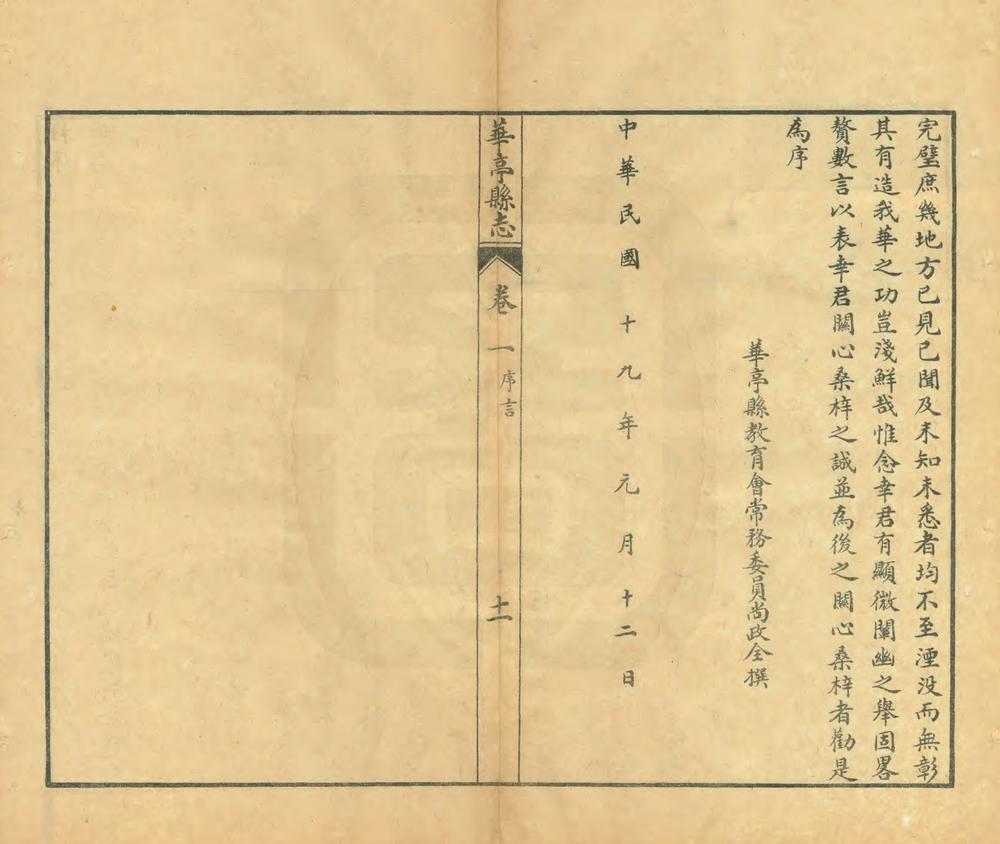 完璧庶幾地方已見已聞及未知未悉者均不至湮没而無彰
其有造我華之功豈淺鮮哉惟念幸君有顯微闡幽之舉固畧
贅數言以表幸君關心桑梓之誠並為後之關心桑梓者勸是
為序
華亭縣教育會常務委員尚政全撰
中華民國十九年元月十二日
華亭縣志
卷一
序言
十一